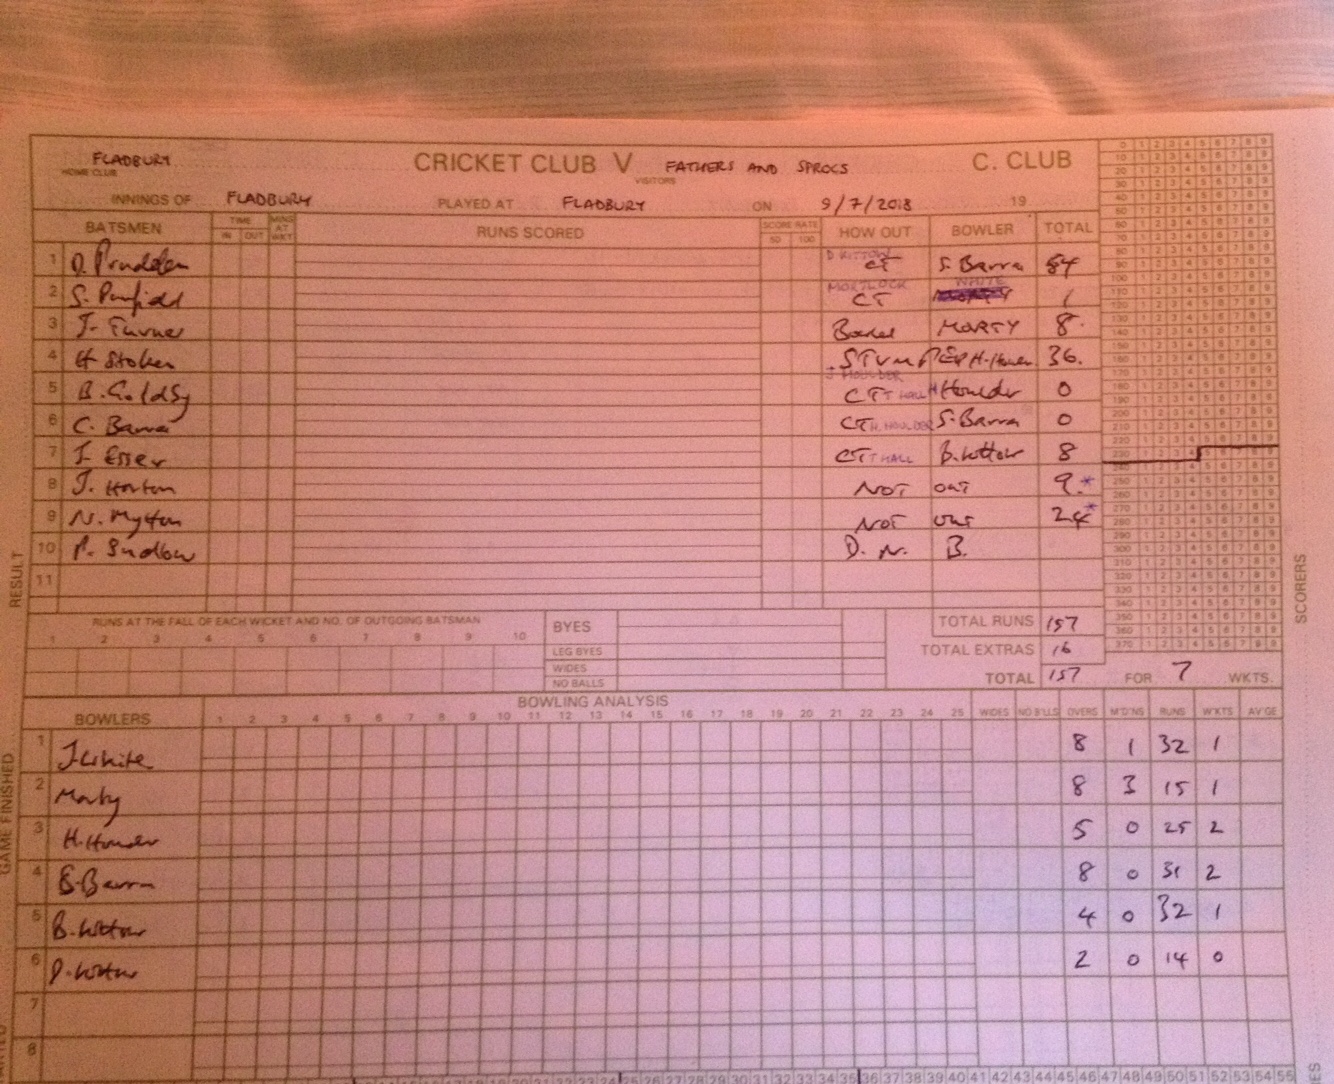 FLADBURY CRICKET CLUB V FATHERS AND SPROGS C. CLUB
HOME CLUB VISITORS
INNINGS OF FLADBURY PLAYED AT FLADBURY ON 9/7/2018 19
BATSMEN TIME IN OUT MINS AT WKT RUNS SCORED SCORE RATE 50 100 HOW OUT BOWLER TOTAL
1 D. Prudden D. KITTOW CT S. Barra 84
2 S. Panfield MORTLOCK CT WHITE 1
3 J. Turner Bowled MORTY 8
4 H Stoker STUMPED H. Houlder 36.
5 B. Goldsy J HOULDER CT T HALL H Houlder 0
6 C. Barra CT H. HOULDER S. Barra 0
7 J. Esser CT T HALL B. Kittow 8
8 J. Horton NOT out 9.*
9 N. Mytton NOT out 24*
10 P. Sudlow D. N. B.
11
RUNS AT THE FALL OF EACH WICKET AND NO. OF OUTGOING BATSMAN
1 2 3 4 5 6 7 8 9 10
BYES TOTAL RUNS 157
LEG BYES TOTAL EXTRAS 16
WIDES
NO BALLS TOTAL 157 FOR 7 WKTS.
BOWLING ANALYSIS
BOWLERS 1 2 3 4 5 6 7 8 9 10 11 12 13 14 15 16 17 18 19 20 21 22 23 24 25 WIDES NO B'LLS OVERS M'D'NS RUNS W'KTS AV'GE
1 J. White 8 1 32 1
2 Morty 8 3 15 1
3 H. Houlder 5 0 25 2
4 S. Barra 8 0 31 2
5 B. Kittow 4 0 32 1
6 D. Kittow 2 0 14 0
7
8
RESULT
GAME FINISHED
SCORERS